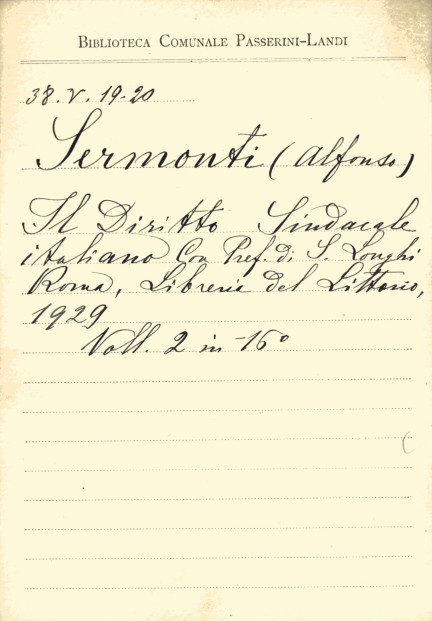 BIBLIOTECA COMUNALE PASSERINI-LANDI
38. V. 19-20
Sermonti (Alfonso)
Il Diritto Sindacale
italiano Con Pref. di S. Longhi
Roma, Librerie del Littorio,
1929
Voll. 2 in -16°